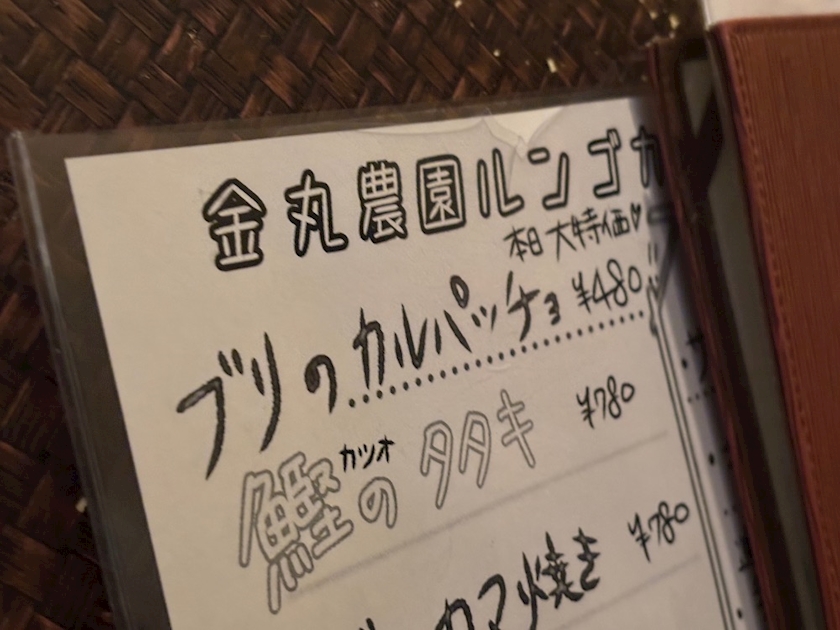 金丸農園ルンゴカ
本日大特価♡
ブリのカルパッチョ ¥480
カツオ
鰹のタタキ ¥780
カマ焼き ¥780